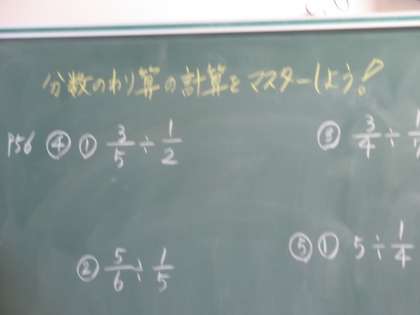 分数のわり算の計算をマスターしよう!
P56 ④ ① 3/5 ÷ 1/2
③ 3/4 ÷
② 5/6 ÷ 1/5
⑤ ① 5 ÷ 1/4